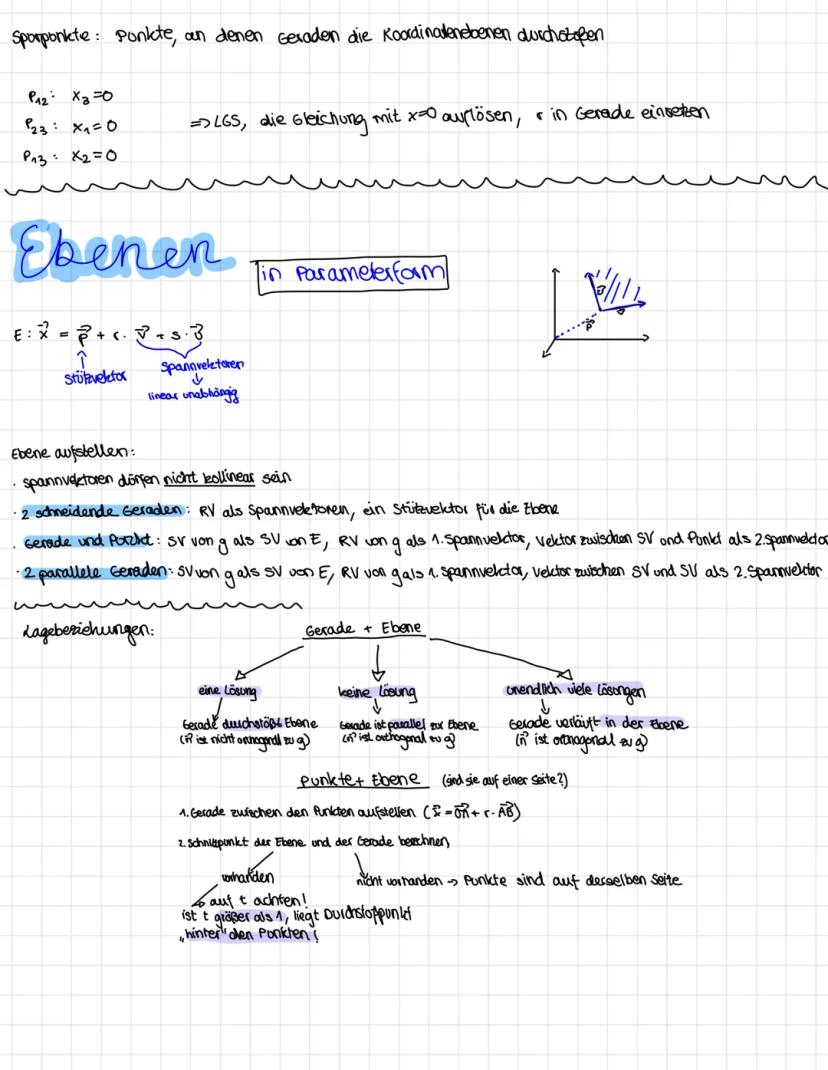 Spurpunkte: Punkte, an denen Geraden die Koordinatenebenen durchstoßen
P₁₂: x₃=0
P₂₃: x₁=0
P₁₃: x₂=0
=> LGS, die Gleichung mit x=0 auflösen, r in Gerade einsetzen
Ebenen
in Parameterform
E: x⃗ = p⃗ + r · v⃗ + s · u⃗
Stützvektor
Spannvektoren
linear unabhängig
u⃗
v⃗
p⃗
Ebene aufstellen:
· Spannvektoren dürfen nicht kollinear sein
· 2 schneidende Geraden: RV als Spannvektoren, ein Stützvektor für die Ebene
· Gerade und Punkt: SV von g als SV von E, RV von g als 1. Spannvektor, Vektor zwischen SV und Punkt als 2. Spannvektor
· 2 parallele Geraden: SV von g als SV von E, RV von g als 1. Spannvektor, Vektor zwischen SV und SV als 2. Spannvektor
Lagebeziehungen:
Gerade + Ebene
eine Lösung
keine Lösung
unendlich viele Lösungen
Gerade durchstößt Ebene
(n⃗ ist nicht orthogonal zu g)
Gerade ist parallel zur Ebene
(n⃗ ist orthogonal zu g)
Gerade verläuft in der Ebene
(n⃗ ist orthogonal zu g)
Punkte + Ebene (sind sie auf einer Seite?)
1. Gerade zwischen den Punkten aufstellen (x⃗ = OA⃗ + r · AB⃗)
2. Schnittpunkt der Ebene und der Gerade berechnen
vorhanden
nicht vorhanden -> Punkte sind auf derselben Seite
auf t achten!
ist t größer als 1, liegt Durchstoßpunkt
„hinter" den Punkten!